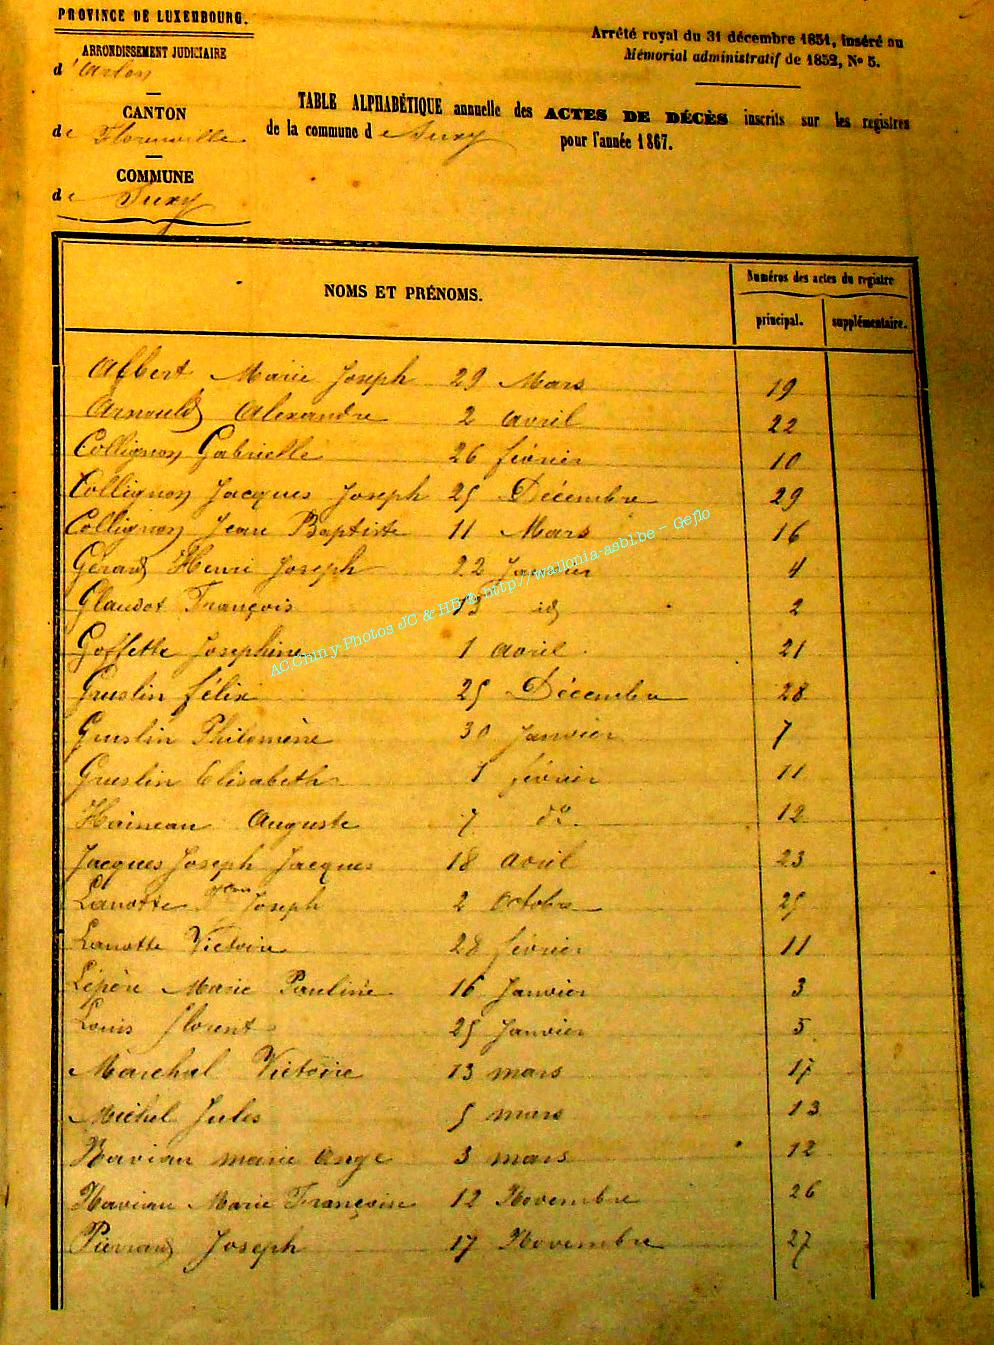 PROVINCE DE LUXEMBOURG.
ARRONDISSEMENT JUDICIAIRE
d'Arlon
CANTON
de Florenville
COMMUNE
de Suxy
Arrêté royal du 31 décembre 1851, inséré au
Mémorial administratif de 1852, N° 5.
TABLE ALPHABÉTIQUE annuelle des ACTES DE DÉCÈS inscrits sur les registres
de la commune de Suxy pour l'année 1867.
NOMS ET PRÉNOMS.
Numéros des actes du registre
principal. supplémentaire.
Albert Marie Joseph 29 Mars 19
Arnould Alexandre 2 avril 22
Collignon Gabrielle 26 février 10
Collignon Jacques Joseph 25 Décembre 29
Collignon Jean Baptiste 11 Mars 16
Gérard Henri Joseph 22 Janvier 4
Glaudot François 13 id 2
Goffette Joséphine 1 avril 21
Gueslin félix 25 Décembre 28
Gueslin Philomène 30 Janvier 7
Gueslin Elisabeth 1 février 11
Haineau Auguste 7 d°. 12
Jacques Joseph Jacques 18 avril 23
Lanotte Joseph 2 Octobre 25
Lanotte Victoire 28 février 11
Lépère Marie Pauline 16 Janvier 3
Louis florent 25 Janvier 5
Maréchal Victoire 13 mars 17
Michel Jules 5 mars 13
Naviau marie Ange 3 mars 12
Naviau Marie Françoise 12 Novembre 26
Pierrard Joseph 17 Novembre 27
AC.Chiny Photos JC & HB © http//wallonia-asbl.be - Geflo